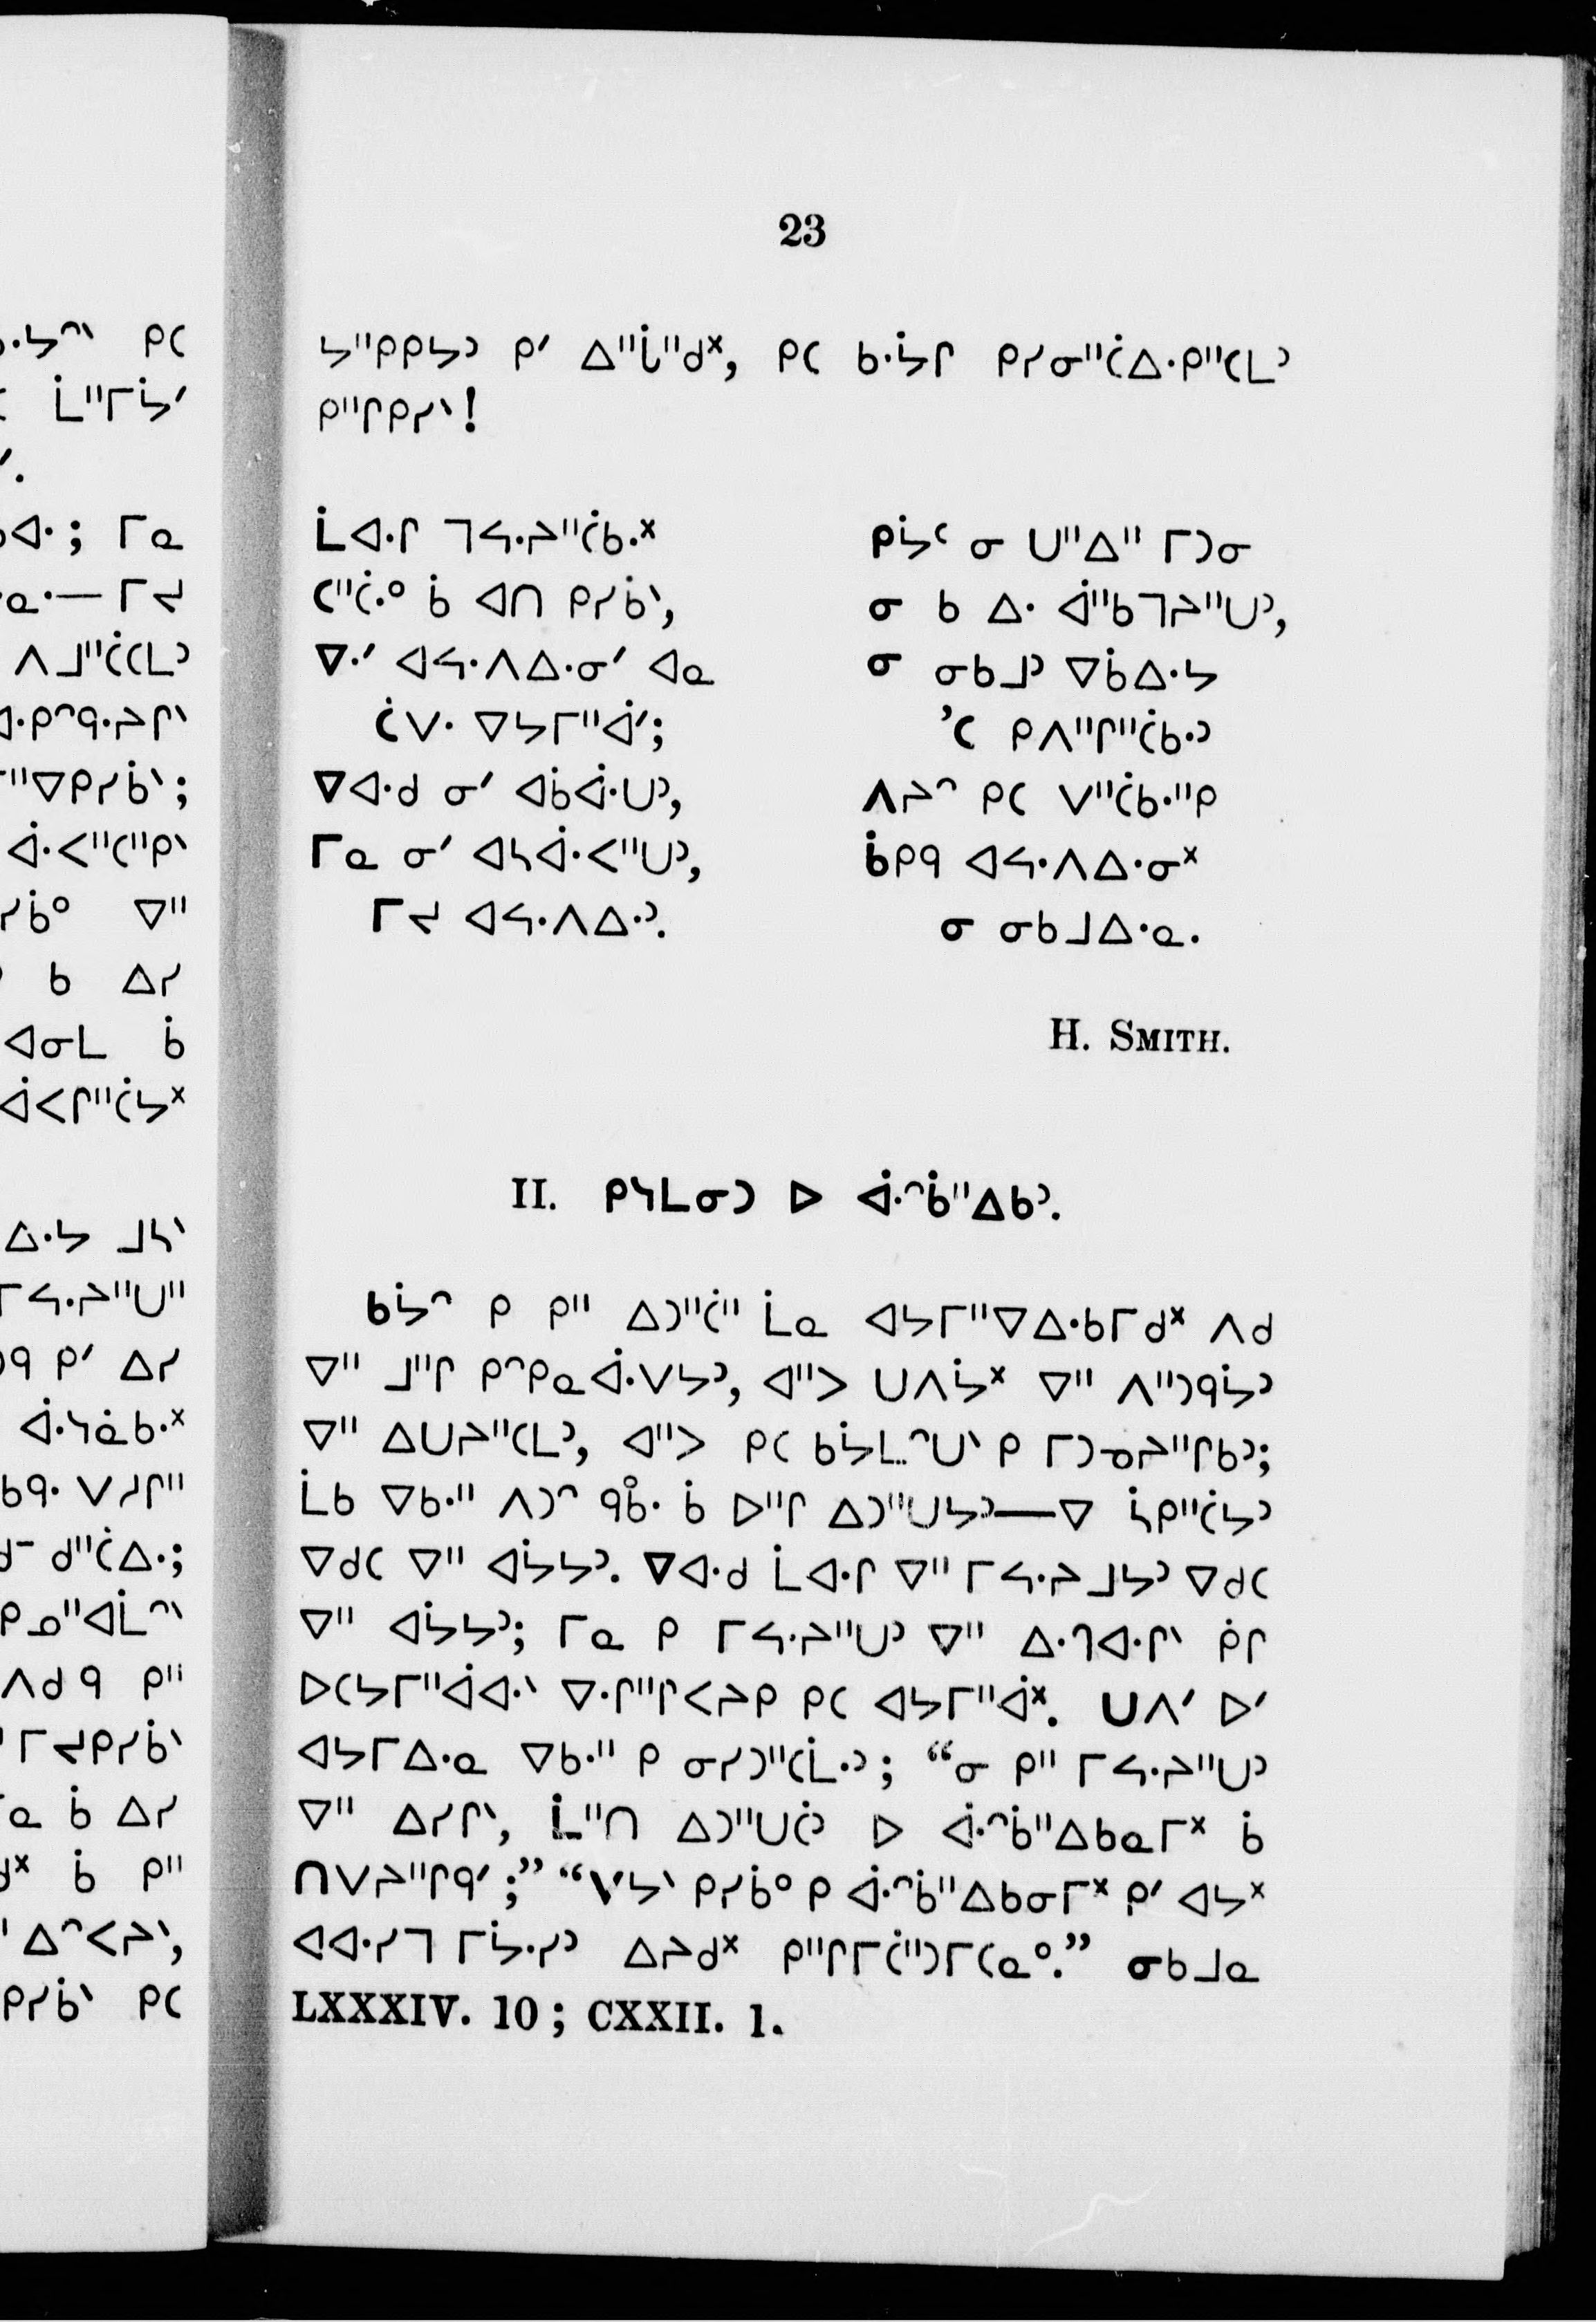 23
ᔭᐦᑭᑭᔭᐣ ᑭᐟ ᐃᐦᒑᐦᑯᕽ, ᑭᑕ ᑲᐧᔮᒋ ᑭᓯᓂᐦᑖᐃᐧᑭᐦᑕᒪᐣ
ᑭᐦᒋᑭᓯᐠ!
ᒫᐊᐧᒋ ᒣᓴᐧᔨᐦᑖᑲᐧᕽ
ᑕᐦᑖᐧᐤ ᑳ ᐊᑎ ᑭᓯᑳᐠ,
ᐁᐧᐟ ᐊᓴᐧᐱᐃᐧᓂᐟ ᐊᓇ
ᑖᐯᐧ ᐁᔭᒥᐦᐋᐟ;
ᐁᐊᐧᑯ ᓂᐟ ᐊᑳᐋᐧᑌᐣ,
ᒥᓇ ᓂᐟ ᐊᓴᐋᐧᐸᐦᑌᐣ,
ᒥᔪ ᐊᓴᐧᐱᐃᐧᐣ.
ᑭᔮᑦ ᓂ ᑌᐦᐃᐦ ᒥᑐᓂ
ᓂ ᑲ ᐃᐧ ᐋᐦᑲᒣᔨᐦᑌᐣ,
ᓂ ᓂᑲᒧᐣ ᐁᑳᐃᐧᔭ
’ᑕ ᑭᐱᐦᒋᐦᑖᑲᐧᐣ
ᐱᔨᐢ ᑭᑕ ᐯᐦᑖᑲᐧᐦᑭ
ᑳᑭᑫ ᐊᓴᐧᐱᐃᐧᓂᕽ
ᓂ ᓂᑲᒧᐃᐧᓇ.
H. SMITH.
II. ᑭᓴᒪᓂᑐ ᐅ ᐋᐧᐢᑳᐦᐃᑲᐣ.
ᑲᔮᐢ ᑭ ᑭᐦ ᐃᑐᐦᑖᐦ ᒫᓇ ᐊᔭᒥᐦᐁᐃᐧᑲᒥᑯᕽ ᐱᑯ
ᐁᐦ ᒧᐦᒋ ᑭᐢᑭᓇᐋᐧᐯᔭᐣ, ᐊᐦᐳ ᑌᐱᔮᕽ ᐁᐦ ᐱᐦᑐᑫᔮᐣ
ᐁᐦ ᐃᑌᔨᐦᑕᒪᐣ, ᐊᐦᐳ ᑭᑕ ᑲᔮᒪᐢᑌᐠ ᑭ ᒥᑐᓀᔨᐦᒋᑲᐣ;
ᒫᑲ ᐁᑲᐧᐦ ᐱᑐᐢ ᑫᑳᐧ ᑳ ᐅᐦᒋ ᐃᑐᐦᑌᔭᐣ—ᐁ ᓵᑭᐦᑖᔭᐣ
ᐁᑯᑕ ᐁᐦ ᐊᔮᔭᐣ. ᐁᐊᐧᑯ ᒫᐊᐧᒋ ᐁᐦ ᒥᓴᐧᔨᒧᔭᐣ ᐁᑯᑕ
ᐁᐦ ᐊᔮᔭᐣ; ᒥᓇ ᑭ ᒥᓴᐧᔨᐦᑌᐣ ᐁᐦ ᐃᐧᒉᐊᐧᒋᐠ ᑮᒋ
ᐅᑕᔭᒥᐦᐋᐊᐧᐠ ᐁᐧᒋᐦᒋᐸᔨᑭ ᑭᑕ ᐊᔭᒥᐦᐋᕽ. ᑌᐱᐟ ᐅᐟ
ᐊᔭᒥᐃᐧᓇ ᐁᑲᐧᐦ ᑭ ᓂᓯᑐᐦᑕᒫᐧᐣ; “ᓂ ᑭᐦ ᒥᓴᐧᔨᐦᑌᐣ
ᐁᐦ ᐃᓯᒋᐠ, ᒫᐦᑎ ᐃᑐᐦᑌᑖᐣ ᐅ ᐋᐧᐢᑳᐦᐃᑲᓇᒥᕽ ᑳ
ᑎᐯᔨᐦᒋᑫᐟ;” “ᐯᔭᐠ ᑭᓯᑳᐤ ᑭ ᐋᐧᐢᑳᐦᐃᑲᓂᒥᕽ ᑭᐟ ᐊᔭᕽ
ᐊᐊᐧᓯᒣ ᒥᔮᐧᓯᐣ ᐃᔨᑯᕽ ᑭᐦᒋᒥᑖᐦᑐᒥᑕᓇᐤ.” ᓂᑲᒧᓇ
LXXXIV. 10; CXXII. 1.